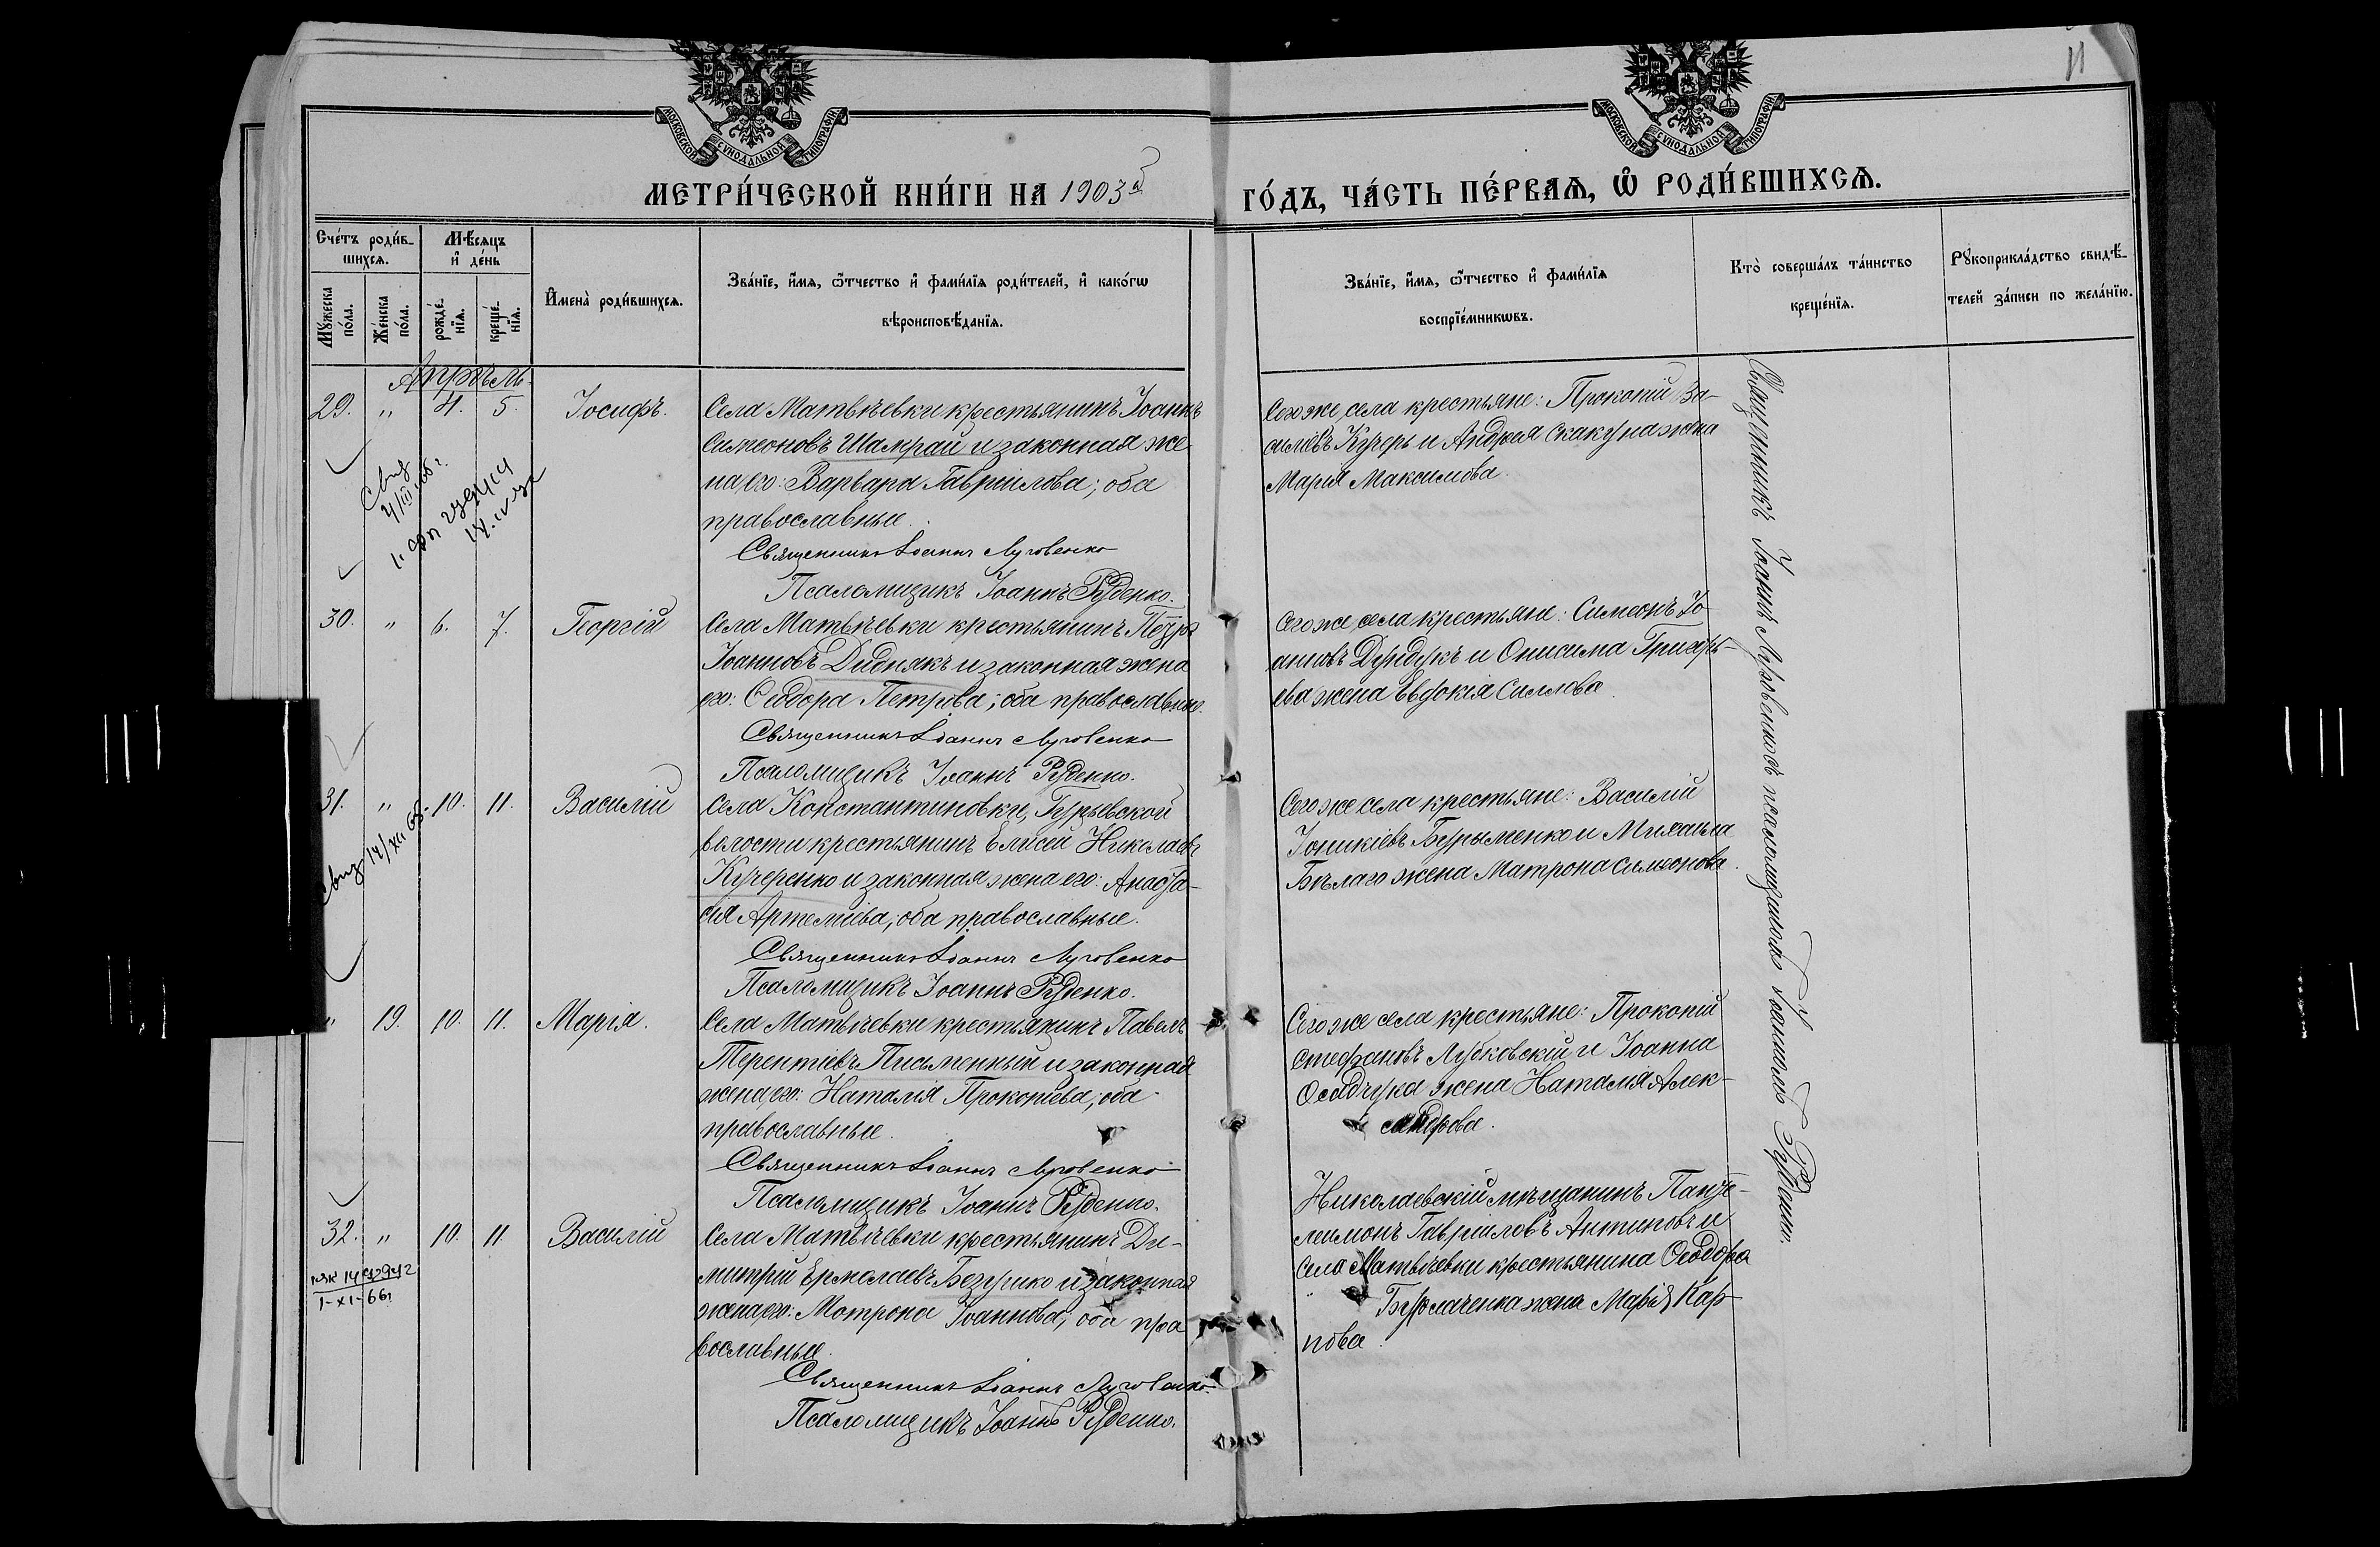 11
МОСКОВСКОЙ СѴНОДАЛЬНОЙ ТИПОГРАФІИ
МОСКОВСКОЙ СѴНОДАЛЬНОЙ ТИПОГРАФІИ
МЕТРИ́ЧЕСКОЙ КНИ́ГИ НА 1903й ГО́ДЪ, ЧА́СТЬ ПЕ́РВАѦ, Ѡ҆ РОДИ́ВШИХСѦ.
Сче́тъ роди́в-
шихсѧ.
Мѣ́сѧцъ
и҆ де́нь
Мꙋ́жеска
по́ла.
Же́нска
по́ла.
рожде́-
нїѧ.
креще́-
нїѧ.
И҆мена̀ роди́вшихсѧ.
Зва́нїе, и҆́мѧ, ѻ҆́тчество и҆ фами́лїѧ роди́телей, и҆ како́гѡ
вѣроисповѣ́данїѧ.
Зва́нїе, и҆́мѧ, ѻ҆́тчество и҆ фами́лїѧ
воспрїе́мникѡвъ.
Кто̀ соверша́лъ та́инство
креще́нїѧ.
Рꙋкоприкла́дство свидѣ́-
телей за́писи по жела́нїю.
Апрѣль.
29. " 4. 5. Іосифъ.
Села Матвѣевки крестьянинъ Іоаннъ
Симеоновъ Шамрай и законная же
на его: Варвара Гавріилова; оба
православные.
Священникъ Іоаннъ Луговенко
Псаломщикъ Іоаннъ Руденко.
Сего же села крестьяне: Прокопій Ва-
силіевъ Кучеръ и Андрея Скакуна жена
Марія Максимова.
30. " 6. 7. Георгій
Села Матвѣевки крестьянинъ Петръ
Іоанновъ Дидныкъ и законная жена
его: Ѳеодора Петрова; оба православные.
Священникъ Іоаннъ Луговенко
Псаломщикъ Іоаннъ Руденко.
Сего же села крестьяне: Симеонъ Іо-
анновъ Дундукъ и Онисима Григорь-
ева жена Евдокія Силлова.
31. " 10. 11. Василій
Села Константиновки, Гурьевской
волости крестьянинъ Елисей Николаевъ
Кучеренко и законная жена его: Анаста-
сія Артеміева; оба православные.
Священникъ Іоаннъ Луговенко
Псаломщикъ Іоаннъ Руденко.
Сего же села крестьяне: Василій
Іоникіевъ Бурыменко и Михаила
Бѣлаго жена Матрона Симеонова.
" 19. 10. 11. Марія.
Села Матвѣевки крестьянинъ Павелъ
Терентіевъ Письменный и законная
жена его: Наталія Прокопіева; оба
православные.
Священникъ Іоаннъ Луговенко
Псаломщикъ Іоаннъ Руденко.
Сего же села крестьяне: Прокопій
Стефановъ Лубковскій и Іоанна
Осадчука жена Наталія Алек-
сандрова.
32. " 10. 11. Василій
Села Матвѣевки крестьянинъ Ди-
митрій Ермолаевъ Безушко и законная
жена его: Мотрона Іоаннова; оба пра
вославные.
Священникъ Іоаннъ Луговенко.
Псаломщикъ Іоаннъ Руденко.
Николаевскій мѣщанинъ Панте-
леимонъ Гавріиловъ Антиповъ и
Села Матвѣевки крестьянина Ѳеодора
жена Марія Кар-
пова.
Священникъ Іоаннъ Луговенко съ псаломщикомъ Іоанномъ Руденко.